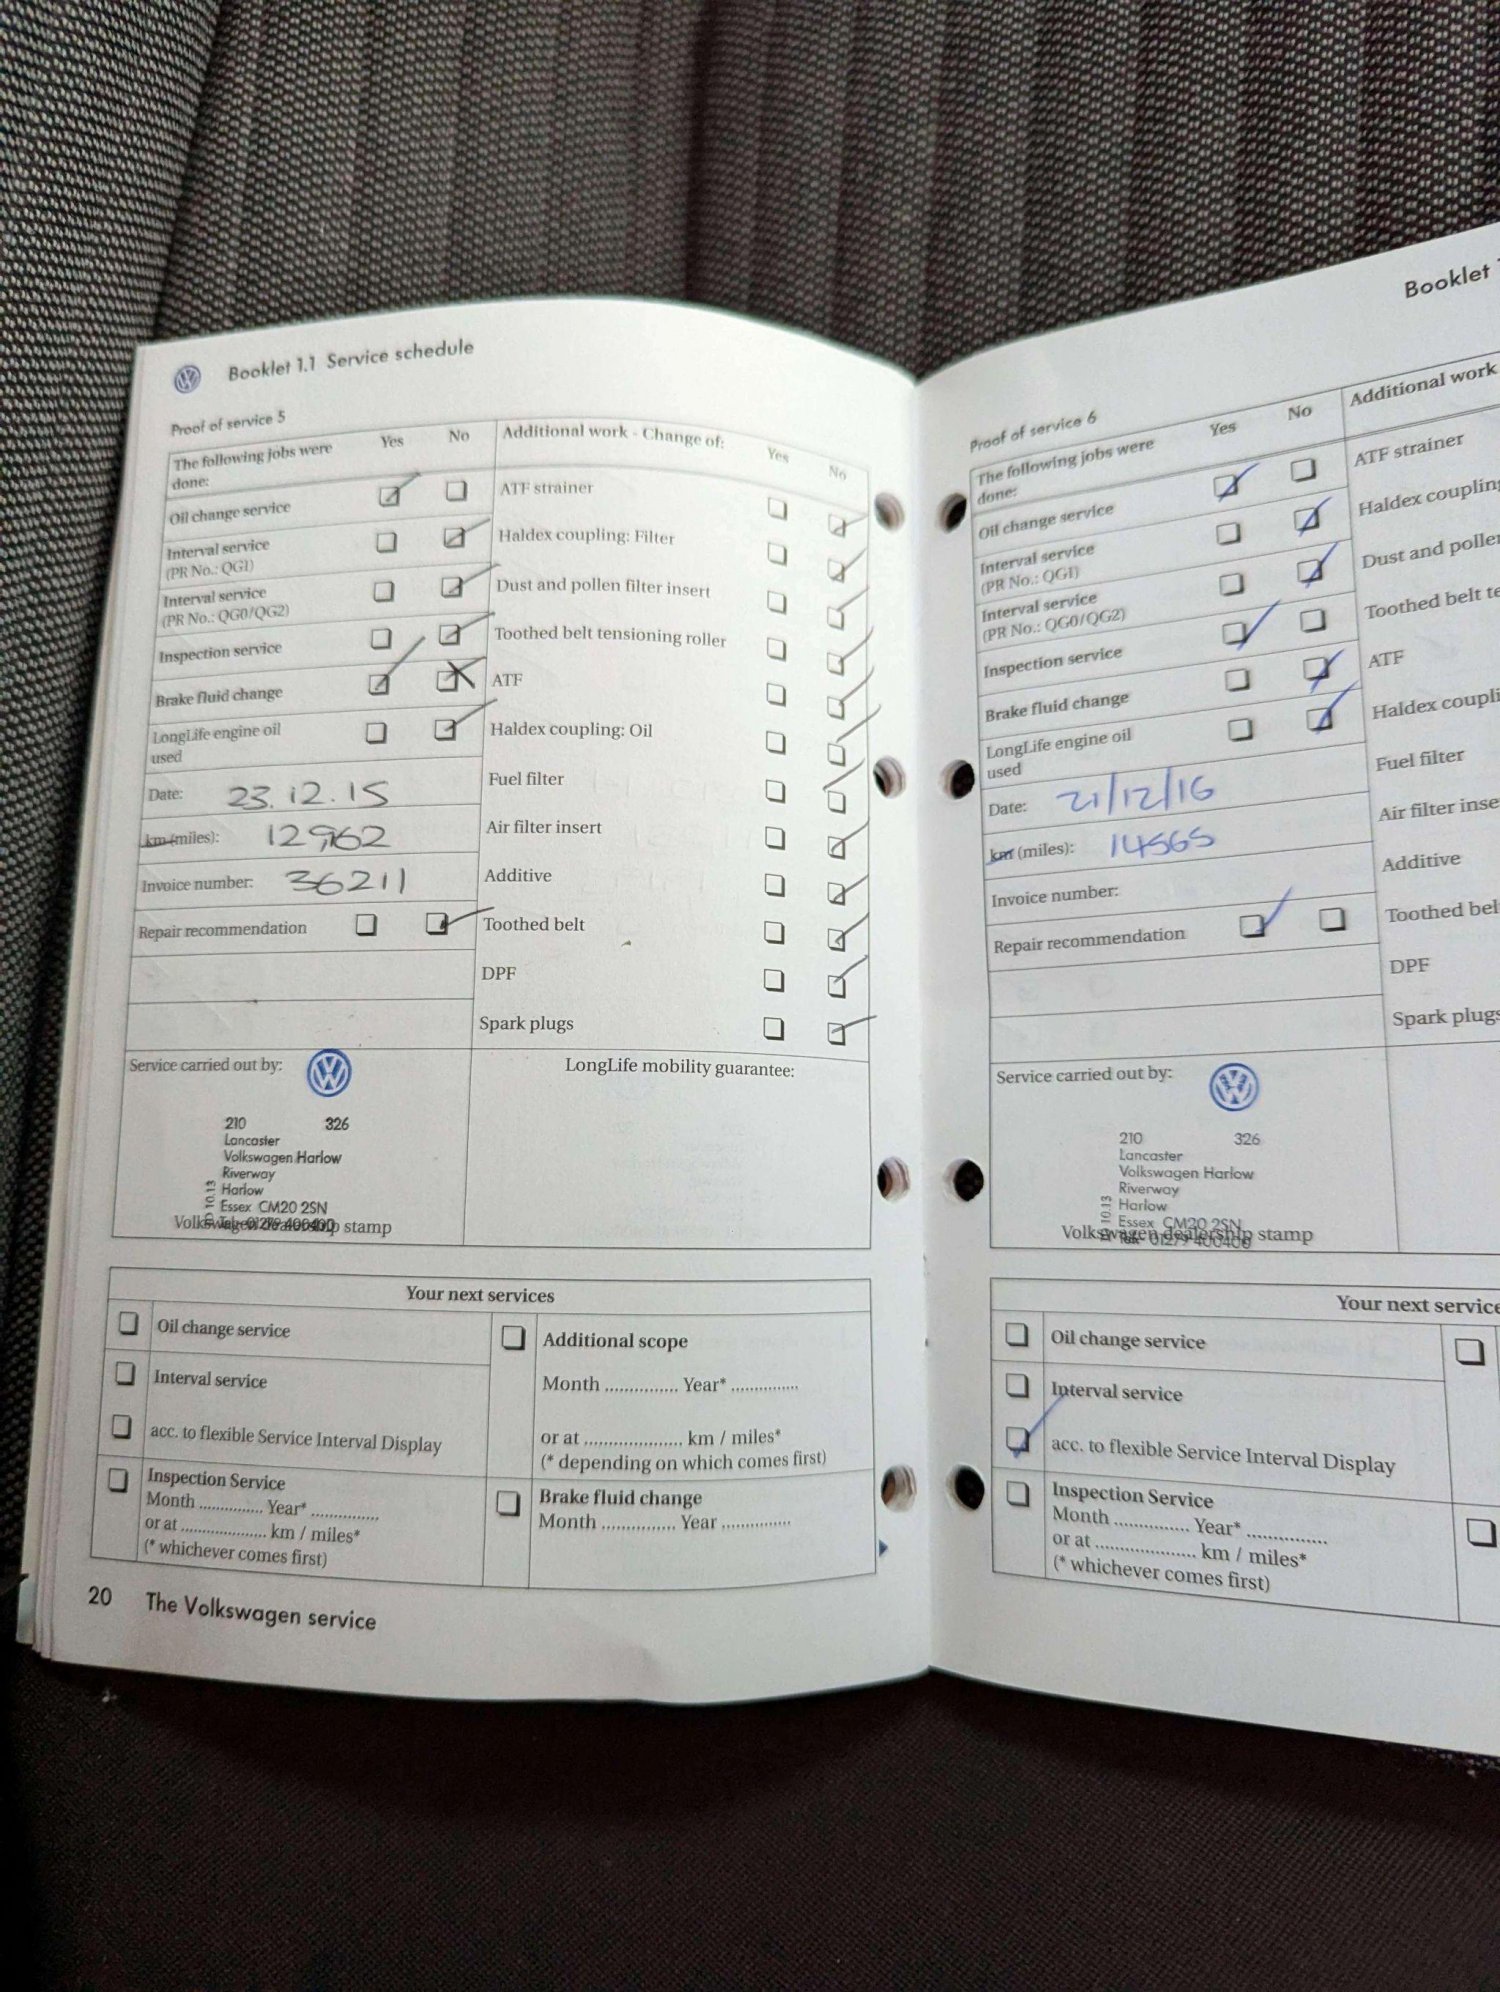 Booklet 1.1 Service schedule
Proof of service 5
The following jobs were done:
Yes No
Additional work - Change of:
Yes No
Oil change service
Interval service
(PR No.: QG1)
Interval service
(PR No.: QG0/QG2)
Inspection service
Brake fluid change
LongLife engine oil
used
Date: 23.12.15
km (miles): 12,962
Invoice number: 36211
Repair recommendation
ATF strainer
Haldex coupling: Filter
Dust and pollen filter insert
Toothed belt tensioning roller
ATF
Haldex coupling: Oil
Fuel filter
Air filter insert
Additive
Toothed belt
DPF
Spark plugs
Service carried out by:
210 326
Lancaster
Volkswagen Harlow
Riverway
Harlow
Essex CM20 2SN
Tel: 01279 400400
10.13
Volkswagen dealership stamp
LongLife mobility guarantee:
Your next services
Oil change service
Interval service
acc. to flexible Service Interval Display
Inspection Service
Month .............. Year* ...............
or at .................... km / miles*
(* whichever comes first)
Additional scope
Month ............... Year* ..............
or at .................... km / miles*
(* depending on which comes first)
Brake fluid change
Month ............... Year ..............
20 The Volkswagen service
Booklet
Proof of service 6
The following jobs were
done:
Yes No
Additional work
Oil change service
Interval service
(PR No.: QG1)
Interval service
(PR No.: QG0/QG2)
Inspection service
Brake fluid change
LongLife engine oil
used
Date: 21/12/16
km (miles): 14565
Invoice number:
Repair recommendation
ATF strainer
Haldex coupling
Dust and pollen
Toothed belt
ATF
Haldex
Fuel filter
Air filter
Additive
Toothed
DPF
Spark plugs
Service carried out by:
210 326
Lancaster
Volkswagen Harlow
Riverway
Harlow
Essex CM20 2SN
Tel: 01279 400400
10.13
Volkswagen dealership stamp
Your next
Oil change service
Interval service
acc. to flexible Service Interval Display
Inspection Service
Month .............. Year* ...............
or at .................... km / miles*
(* whichever comes first)